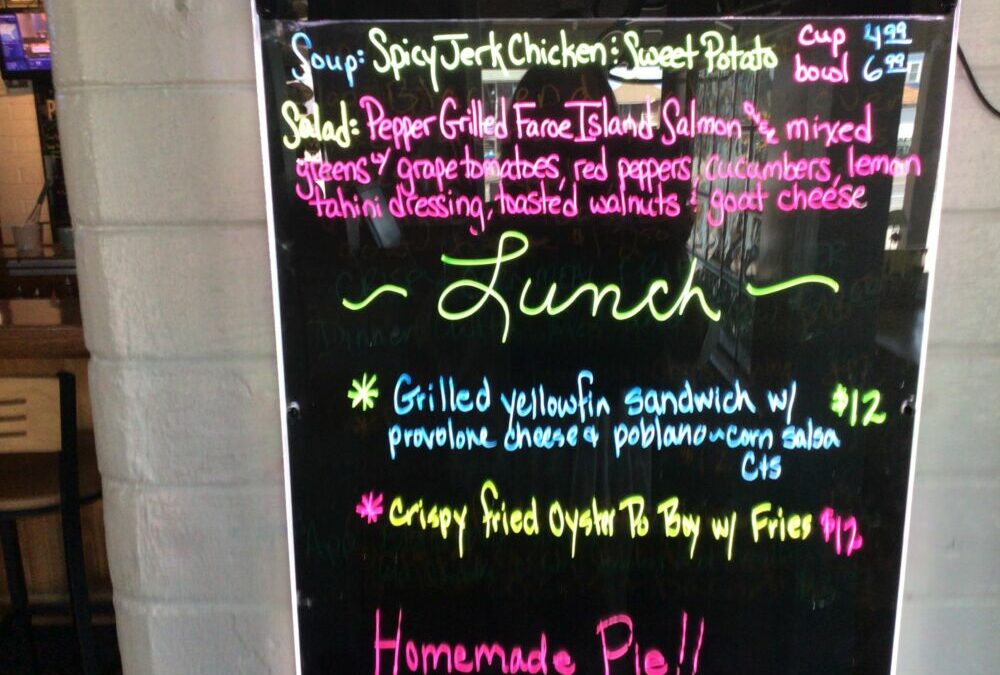 Soup: Spicy Jerk Chicken & Sweet Potato cup 4.99
bowl 6.99
Salad: Pepper Grilled Faroe Island Salmon over mixed
greens w/ grape tomatoes, red peppers, cucumbers, lemon
tahini dressing, toasted walnuts & goat cheese
~ Lunch ~
* Grilled yellowfin sandwich w/ $12
provolone cheese & poblano-corn salsa
cts
* Crispy fried Oyster Po Boy w/ Fries $12
Homemade Pie!!